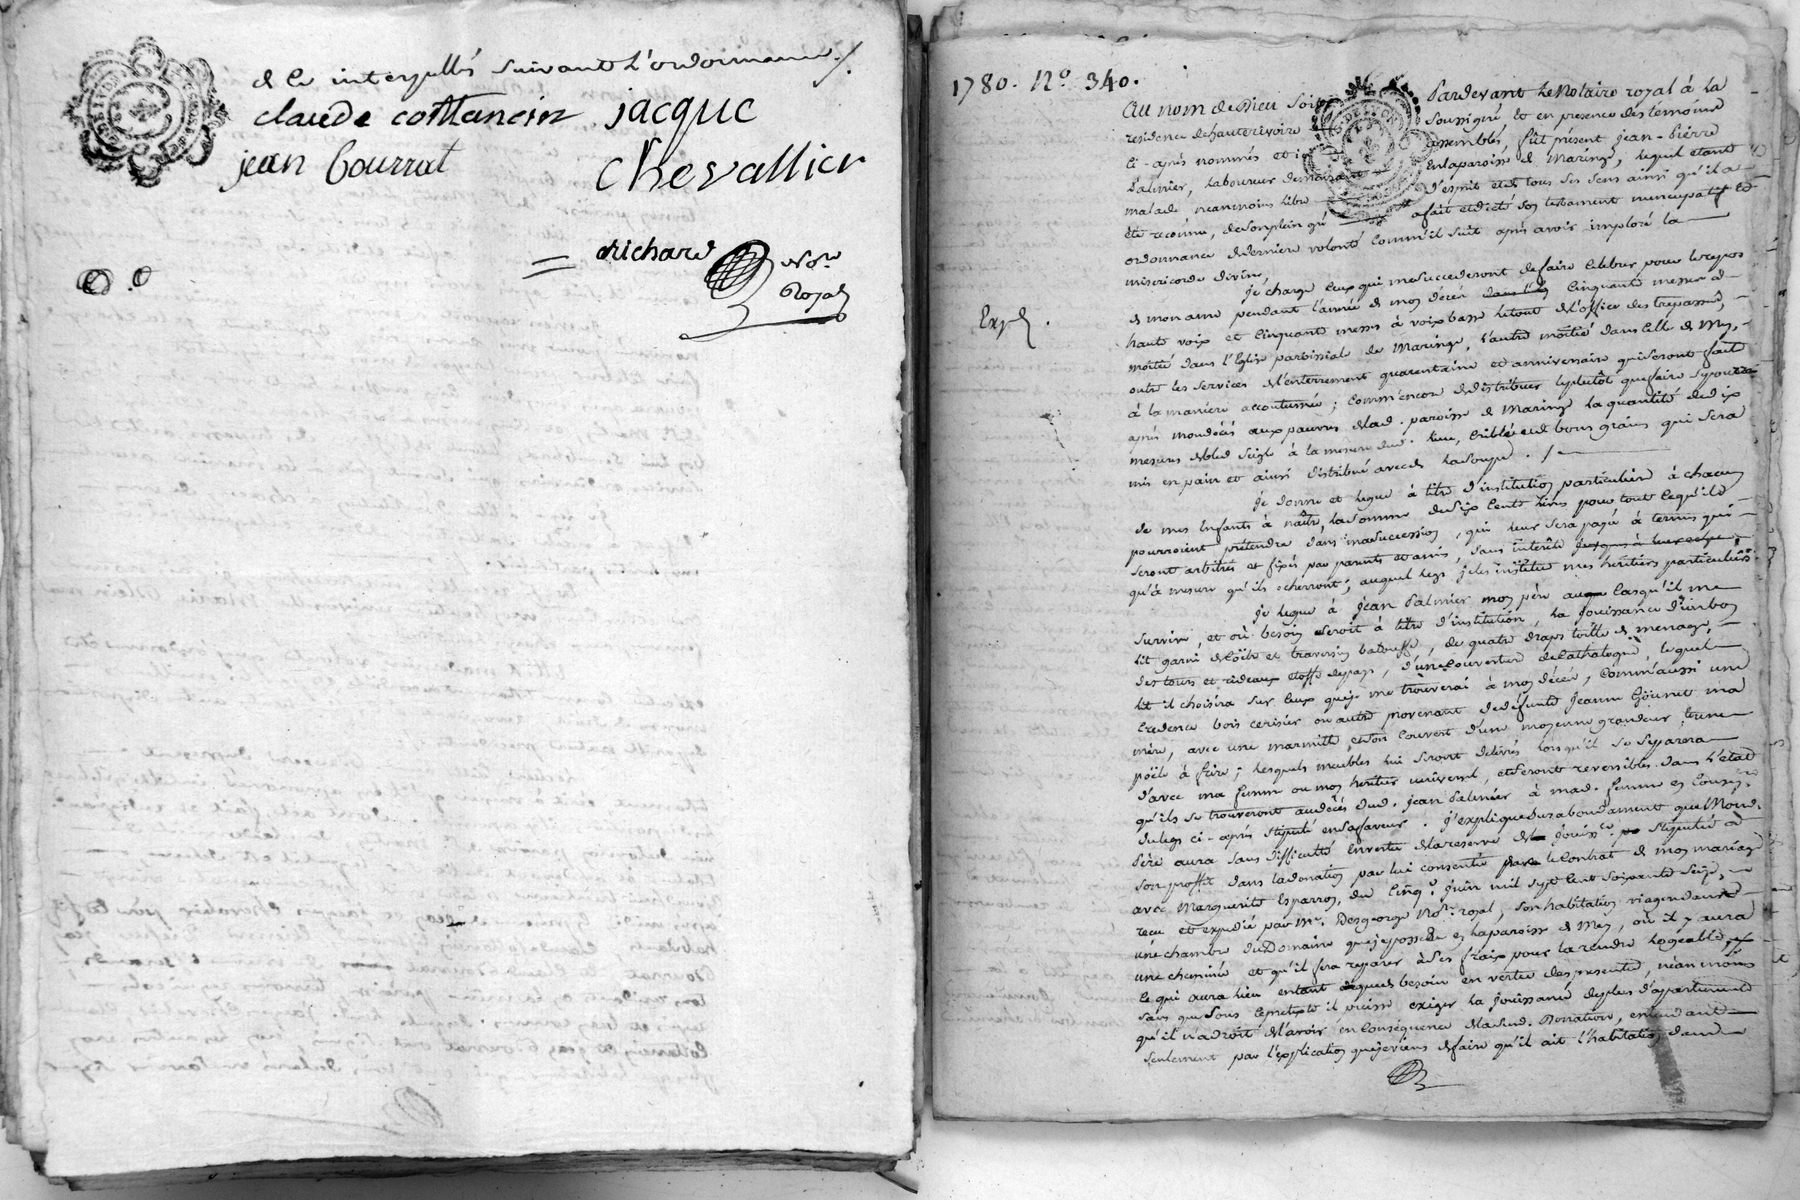 & le interpellés suivant l'ordonnance ./.
claude cottancin jacque
jean Gourrat Chevallier
Richard No.re
Royal
1780. N.o 340.
Au nom de Dieu soit Pardevant le Notaire royal à la
residence de hauterivoire soussigné et en presence des temoins
ci-après nommés et assemblés, fût présent jean-pierre
Palmier, laboureur demeurant en la paroisse de Maringe, lequel etant
malade neanmoins libre d'esprit et de tous ses sens ainsi qu'il a
été reconnu, de son plein gré a fait et dicté son testament nuncupatif et
ordonnance de derniere volonté comm'il suit après avoir imploré la
misericorde divine,
je charge ceux qui me succederont de faire celebrer pour le repos
de mon ame pendant l'année de mon décès cinquante messes à
haute voix et cinquante messes à voix basse le tout de l'office des trepassés,
moitié dans l'Eglise parroissial de Maringe, l'autre moitié dans celle de Mey,
outre les services de l'enterrement quarantaine et anniversaire qui seront fait
à la maniere accoutumée ; comm'encore de distribuer le plutôt que faire se pourra
après mon décès aux pauvres de lad. paroisse de Maringe la quantité de dix
mesures de bled seigle à la mesure dud. lieu, criblé et de bons grains qui sera
mis en pain et ainsi distribué avec de la soupe . /
je donne et legue à titre d'institution particuliere à chacun
de mes enfants à naître, la somme de six cents livres pour tout ce qu'ils
pourroient prétendre dans ma succession, qui leur sera payé à termes qui
seront arbitrés et fixés par parents et amis, sans interêts
qu'à mesure qu'ils echerront ; auquel legs je les institue mes héritiers particuliers.
je legue à jean Palmier mon père au cas qu'il me
survive, et où besoin seroit à titre d'institution, la jouissance d'un bon
lit garni de coite et traversin, de quatre draps toille de menage,
des tours et rideaux etoffe de pays, d'une couverture de Cathalogne, lequel
lit il choisira sur ceux que je me trouverai à mon décès, comm'aussi une
credence bois cerisier ou autre provenant de defunte jeanne ma
mère, avec une marmitte et son couvert d'une moyenne grandeur et une
poële à frire ; lesquels meubles lui seront délivrés lorsqu'il se separera
d'avec ma femme ou mon heritier universel, et seront reversibles dans l'état
qu'ils se trouveront au décès dud. jean Palmier à mad. femme en
du legs ci-après stipulé en sa faveur . j'explique surabondament que Mond.
Père aura sans difficulté en vertu de la reserve de jouiss.ce stipulée à
son proffit dans la donation par lui consentie par le Contrat de mon mariage
avec Marguerite Esparron, du cinq.e juin mil sept cent soixante seize,
recu et expedié par M.e Desgeorge No.re royal, son habitation viagere dans
une chambre du Domaine que je possede en la paroisse de Mey, où il y aura
une cheminée et qu'il fera reparer à ses fraix pour la rendre logeable,
ce qui aura lieu entant que de besoin en vertu des presentes, néanmoins
sans que sous ce pretexte il puisse exiger la jouissance de plus d'appartement
qu'il n'a droit de l'avoir en conséquence de la susd. Donnation, entendant
seulement par l'explication que je viens de faire qu'il ait l'habitation dans